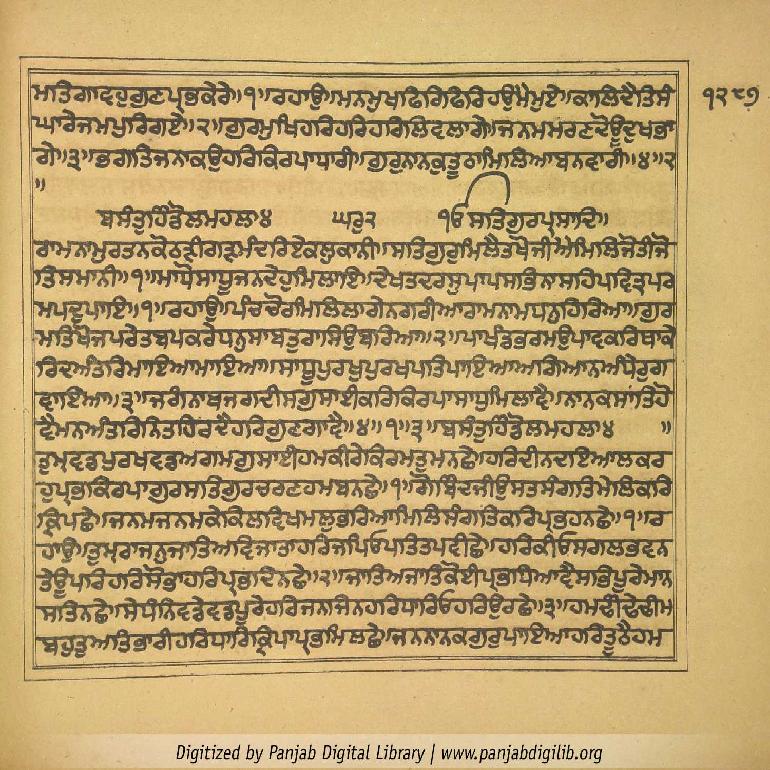 ਮਤਿਗਾਵਹੁਗੁਣਪ੍ਰਭਕੇਰੇ॥੧॥ਰਹਾਉ॥ਮਨਮੁਖਫਿਰਿਫਿਰਿਹਉਮੈਮੁਏ॥ਕਾਲਿਦੈਤਿਸੰ
੧੨੯੭
ਘਾਰੇਜਮਪੁਰਿਗਏ॥੨॥ਗੁਰਮੁਖਿਹਰਿਹਰਿਹਰਿਲਿਵਲਾਗੇ॥ਜਨਮਮਰਣਦੋਊਦੁਖਭਾ
ਗੇ॥੩॥ਭਗਤਿਜਨਾਕਉਹਰਿਕਿਰਪਾਧਾਰੀ॥ਗੁਰੁਨਾਨਕੁਤੁਠਾਮਿਲਿਆਬਨਵਾਰੀ॥੪॥੨
॥
ਬਸੰਤੁਹਿੰਡੋਲਮਹਲਾ੪ ਘਰੁ੨ ੴਸਤਿਗੁਰਪ੍ਰਸਾਦਿ॥
ਰਾਮਨਾਮੁਰਤਨਕੋਠੜੀਗੜਮੰਦਰਿਏਕਲੁਕਾਨੀ॥ਸਤਿਗੁਰੁਮਿਲੈਤਖੋਜੀਐਮਿਲਿਜੋਤੀਜੋ
ਤਿਸਮਾਨੀ॥੧॥ਮਾਧੋਸਾਧੂਜਨਦੇਹੁਮਿਲਾਇ॥ਦੇਖਤਦਰਸੁਪਾਪਸਭਿਨਾਸਹਿਪਵਿਤ੍ਰਪਰ
ਮਪਦੁਪਾਇ॥੧॥ਰਹਾਉ॥ਪੰਚਚੋਰਮਿਲਿਲਾਗੇਨਗਰੀਆਰਾਮਨਾਮਧਨੁਹਿਰਿਆ॥ਗੁਰ
ਮਤਿਖੋਜਪਰੇਤਬਪਕਰੇਧਨੁਸਾਬਤੁਰਾਸਿਉਬਰਿਆ॥੨॥ਪਾਖੰਡਭਰਮਉਪਾਵਕਰਿਥਾਕੇ
ਰਿਦਅੰਤਰਿਮਾਇਆਮਾਇਆ॥ਸਾਧੂਪੁਰਖੁਪੁਰਖਪਤਿਪਾਇਆਅਗਿਆਨਅੰਧੇਰੁਗ
ਵਾਇਆ॥੩॥ਜਗੰਨਾਥਜਗਦੀਸਗੁਸਾਈਕਰਿਕਿਰਪਾਸਾਧੁਮਿਲਾਵੈ॥ਨਾਨਕਸਾਂਤਿਹੋ
ਵੈਮਨਅੰਤਰਿਨਿਤਹਿਰਦੈਹਰਿਗੁਣਗਾਵੈ॥੪॥੧॥੩॥ਬਸੰਤੁਹਿੰਡੋਲਮਹਲਾ੪ ॥
ਤੁਮ੍ਹਵਡਪੁਰਖਵਡਅਗਮਗੁਸਾਈਹਮਕੀਰੇਕਿਰਮਤੁਮਨਛੇ॥ਹਰਿਦੀਨਦਇਆਲਕਰ
ਹੁਪ੍ਰਭਕਿਰਪਾਗੁਰਸਤਿਗੁਰਚਰਣਹਮਬਨਛੇ॥੧॥ਗੋਬਿੰਦਜੀਉਸਤਸੰਗਤਿਮੇਲਿਕਰਿ
ਕ੍ਰਿਪਛੇ॥ਜਨਮਜਨਮਕੇਕਿਲਵਿਖਮਲੁਭਰਿਆਮਿਲਿਸੰਗਤਿਕਰਿਪ੍ਰਭਹਨਛੇ॥੧॥ਰ
ਹਾਉ॥ਤੁਮ੍ਹਰਾਜਨੁਜਾਤਿਅਵਿਜਾਤਾਹਰਿਜਪਿਓਪਤਿਤਪਵੀਛੇ॥ਹਰਿਕੀਓਸਗਲਭਵਨ
ਤੇਊਪਰਿਹਰਿਸੋਭਾਹਰਿਪ੍ਰਭਦਿਨਛੇ॥੨॥ਜਾਤਿਅਜਾਤਿਕੋਈਪ੍ਰਭਧਿਆਵੈਸਭਿਪੂਰੇਮਾਨ
ਸਤਿਨਛੇ॥ਸੇਧੰਨਿਵਡੇਵਡਪੂਰੇਹਰਿਜਨਾਜਿਨਹਰਿਧਾਰਿਓਹਰਿਉਰਛੇ॥੩॥ਹਮਢੀਂਢੇਢੀਮ
ਬਹੁਤੁਅਤਿਭਾਰੀਹਰਿਧਾਰਿਕ੍ਰਿਪਾਪ੍ਰਭਮਿਲਛੇ॥ਜਨਨਾਨਕਗੁਰੁਪਾਇਆਹਰਿਤੂਠੈਹਮ
Digitized by Panjab Digital Library | www.panjabdigilib.org